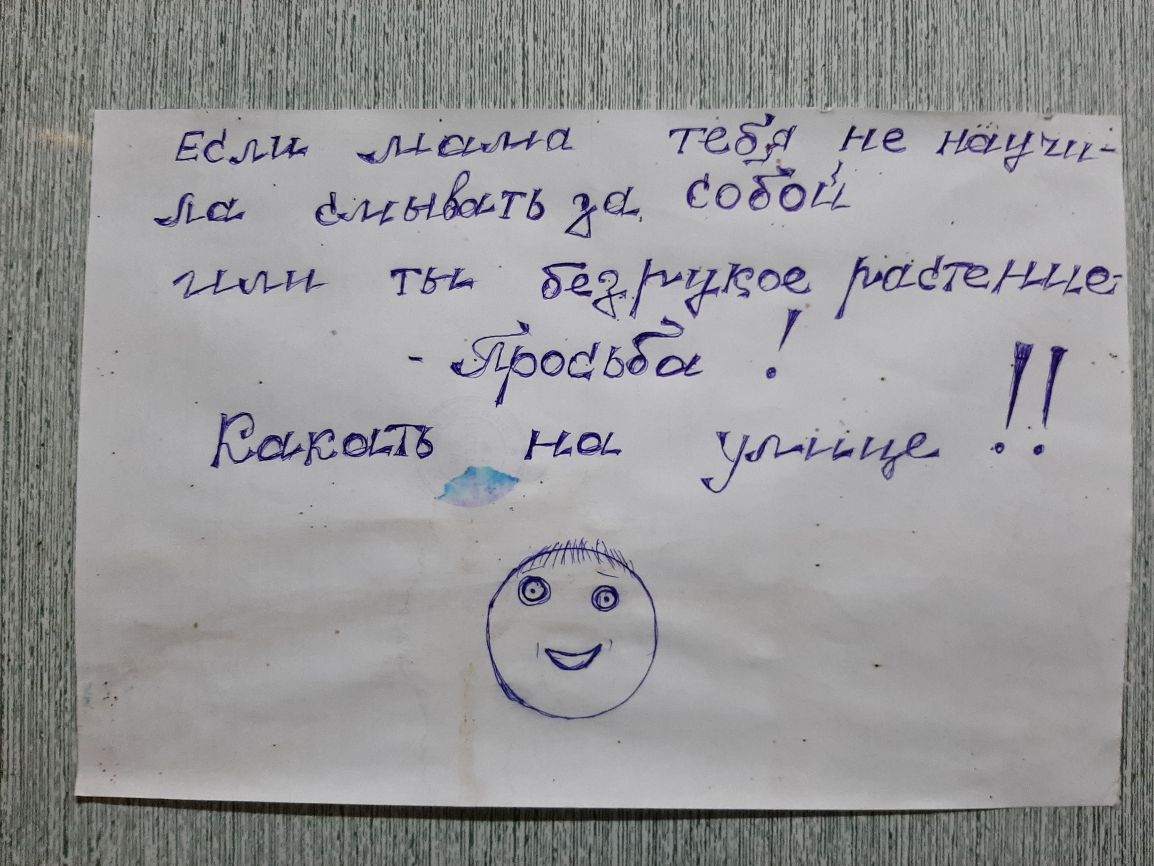 Если мама тебя не научи-
ла смывать за собой
или ты безрукое растение-
- Просьба !
Какать на улице !!